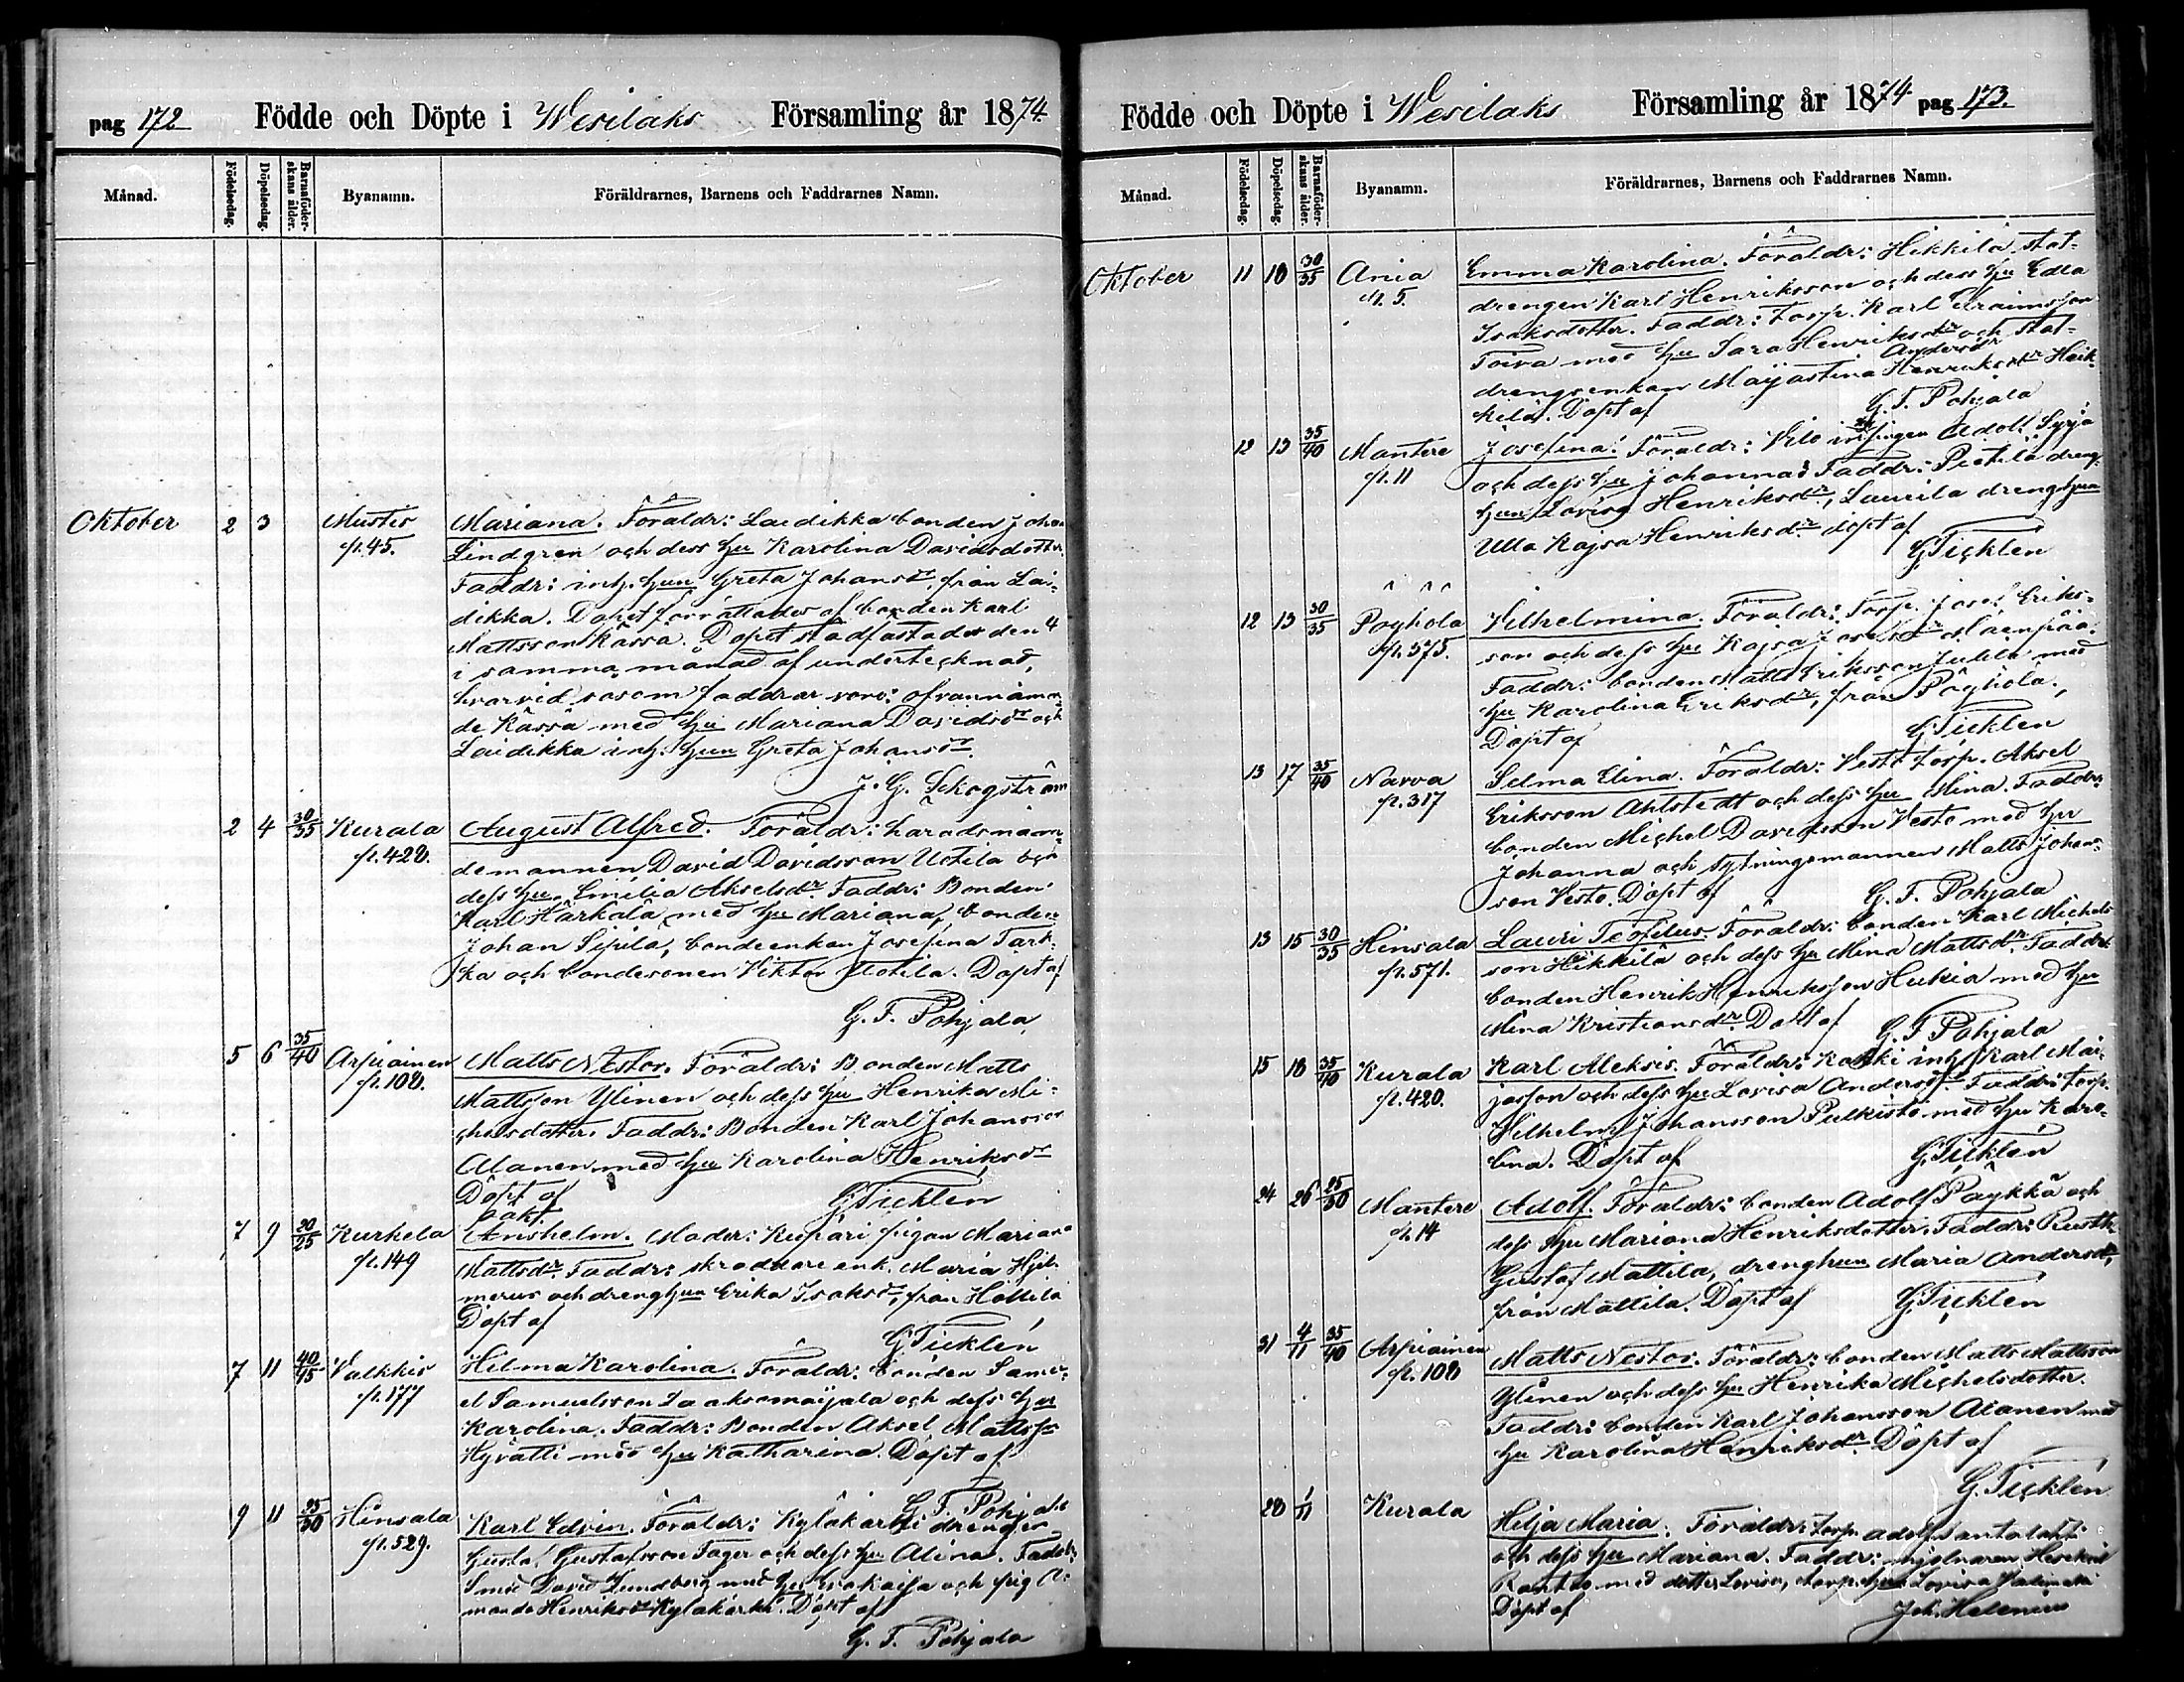 pag 172 Födde och Döpte i Wesilaks Församling år 1874.
Månad. Födelsedag. Döpelsedag. Barnaföderskans ålder. Byanamn. Föräldrarnes, Barnens och Faddrarnes Namn.
Oktober 2 3 Mustis Mariana. Föräldr: Laidikka bonden Johan
p. 45. Lindgren och dess hu Karolina Davidsdotter.
Faddr: inh. hun Greta Johansdr, från Lai-
dikka. Dopet förrättades af bonden Karl
Mattsson Kassa. Dopet stadfästades den 4
i samma månad af undertecknad,
hvarvid såsom faddrar voro: ofvannämn-
de Kassa med hu Mariana Davidsdr och
Laidikka inh. hun Greta Johansdr.
J. G. Skogström
2 4 30/35 Kurala August Alfred. Föräldr: häradsnämn-
p. 428. demannen David Davidsson Uotila och
dess hu Emilia Akselsdr. Faddr: Bonden
Karl Härkälä med hu Mariana, bonden
Johan Sipilä, bondeenkan Josefina Tark-
ka och bondesonen Viktor Uotila. Döpt af
G. F. Pohjala
5 6 35/40 Arpiainen Matts Nestor. Föräldr: Bonden Matts
p. 108. Mattsson Ylinen och dess hu Henrika Mi-
chelsdotter. Faddr: Bonden Karl Johansson
Alanen med hu Karolina Henriksdr
Döpt af G Ticklén
7 9 20/25 Kurkela Anshelm. Moder: Kupari pigan Mariana
p. 149 Mattsdr. Faddr: skräddare enk. Maria Hjel-
merus och dreng hun Erika Isaksdr, från
Döpt af
G Ticklén
7 11 40/45 Valkkis Hilma Karolina. Föräldr: bonden Samu-
p. 177 el Samuelsson Laaksomäjala och dess hu
Karolina. Faddr: Bonden Aksel Mattss
Hyvätti med hu Katharina. Döpt af
G. F. Pohjala
9 11 25/30 Hinsala Karl Edvin. Föräldr: Kyläkarhi drengen
p. 529. Gustaf Gustafsson Fager och dess hu Alina. Faddr:
Smed David Lundberg med hu Evakaisa och pig A-
manda Henriksdr Kyläkarhi. Döpt af
G. F. Pohjala
Födde och Döpte i Wesilaks Församling år 1874 pag 173.
Månad. Födelsedag. Döpelsedag. Barnaföderskans ålder. Byanamn. Föräldrarnes, Barnens och Faddrarnes Namn.
Oktober 11 18 30/35 Ania Emma Karolina. Föräldr: Hikkilä stat-
p. 5. drengen Karl Henriksson och dess hu Edla
Isaksdotter. Faddr: Torp. Karl Efraimsson
Toiva med hu Sara Henriksdr och stat-
Andersdr
drengsenkan Majastina Henriksdr Heik-
kilä. Döpt af G. F. Pohjala
12 13 35/40 Mantere Josefina. Föräldr: Vilo Adolf Syrjä
p. 11 och dess hu Johanna. Faddr: Pietilä dreng-
hun Lovisa Henriksdr, Laurila drenghun
Ulla Kajsa Henriksdr döpt af
G Ticklén
12 13 30/35 Pöyhölä Vilhelmina. Föräldr: Torp. Josef Eriks-
p. 375. son och dess hu Kajsa Josefsdr Mäenpää.
Faddr: bonden Matts Eriksson med
hu Karolina Eriksdr, från Pöyhölä.
Döpt af G Ticklén
13 17 35/40 Narva Selma Elina. Föräldr: Vesto torp. Aksel
p. 317 Eriksson Ahlstedt och dess hu Mina. Faddr:
bonden Michel Davidsson Vesto med hu
Johanna och sytningsmannen Matts Johans-
son Vesto. Döpt af G. F. Pohjala
13 15 30/35 Hinsala Lauri Teofilus. Föräldr: bonden Karl Michels-
p. 571. son Hikkilä och dess hu Mina Mattsdr. Faddr:
bonden Henrik Henriksson Hukia med hu
Mina Kristiansdr. Döpt af G. F Pohjala
15 18 35/40 Kurala Karl Aleksis. Föräldr: inh Karl Mai-
p. 420. jasson och dess hu Lovisa Andersdr. Faddr: torp.
Vilhelm Johansson Pulkisto med hu Karo-
lina. Döpt af G. Ticklén
24 26 25/30 Mantere Adolf. Föräldr: bonden Adolf Päykkä och
p. 14 dess hu Mariana Henriksdotter. Faddr: Rusth.
Gustaf Mattila, drenghun Maria Andersdr,
från Mattila. Döpt af G Ticklén
31 4/11 35/40 Arpiainen Matts Nestor. Föräldr: bonden Matts Mattsson
p. 108 Ylinen och dess hu Henrika Michelsdotter.
Faddr: bonden Karl Johansson Alanen med
hu Karolina Henriksdr. Döpt af
G. Ticklén
28 1/11 Kurala Hilja Maria. Föräldr: torp. Adolf Santalahti
och dess hu Mariana. Faddr: mjölnaren
med dotter Lovisa, torp. hun Lovisa
Döpt af Joh. Helenius